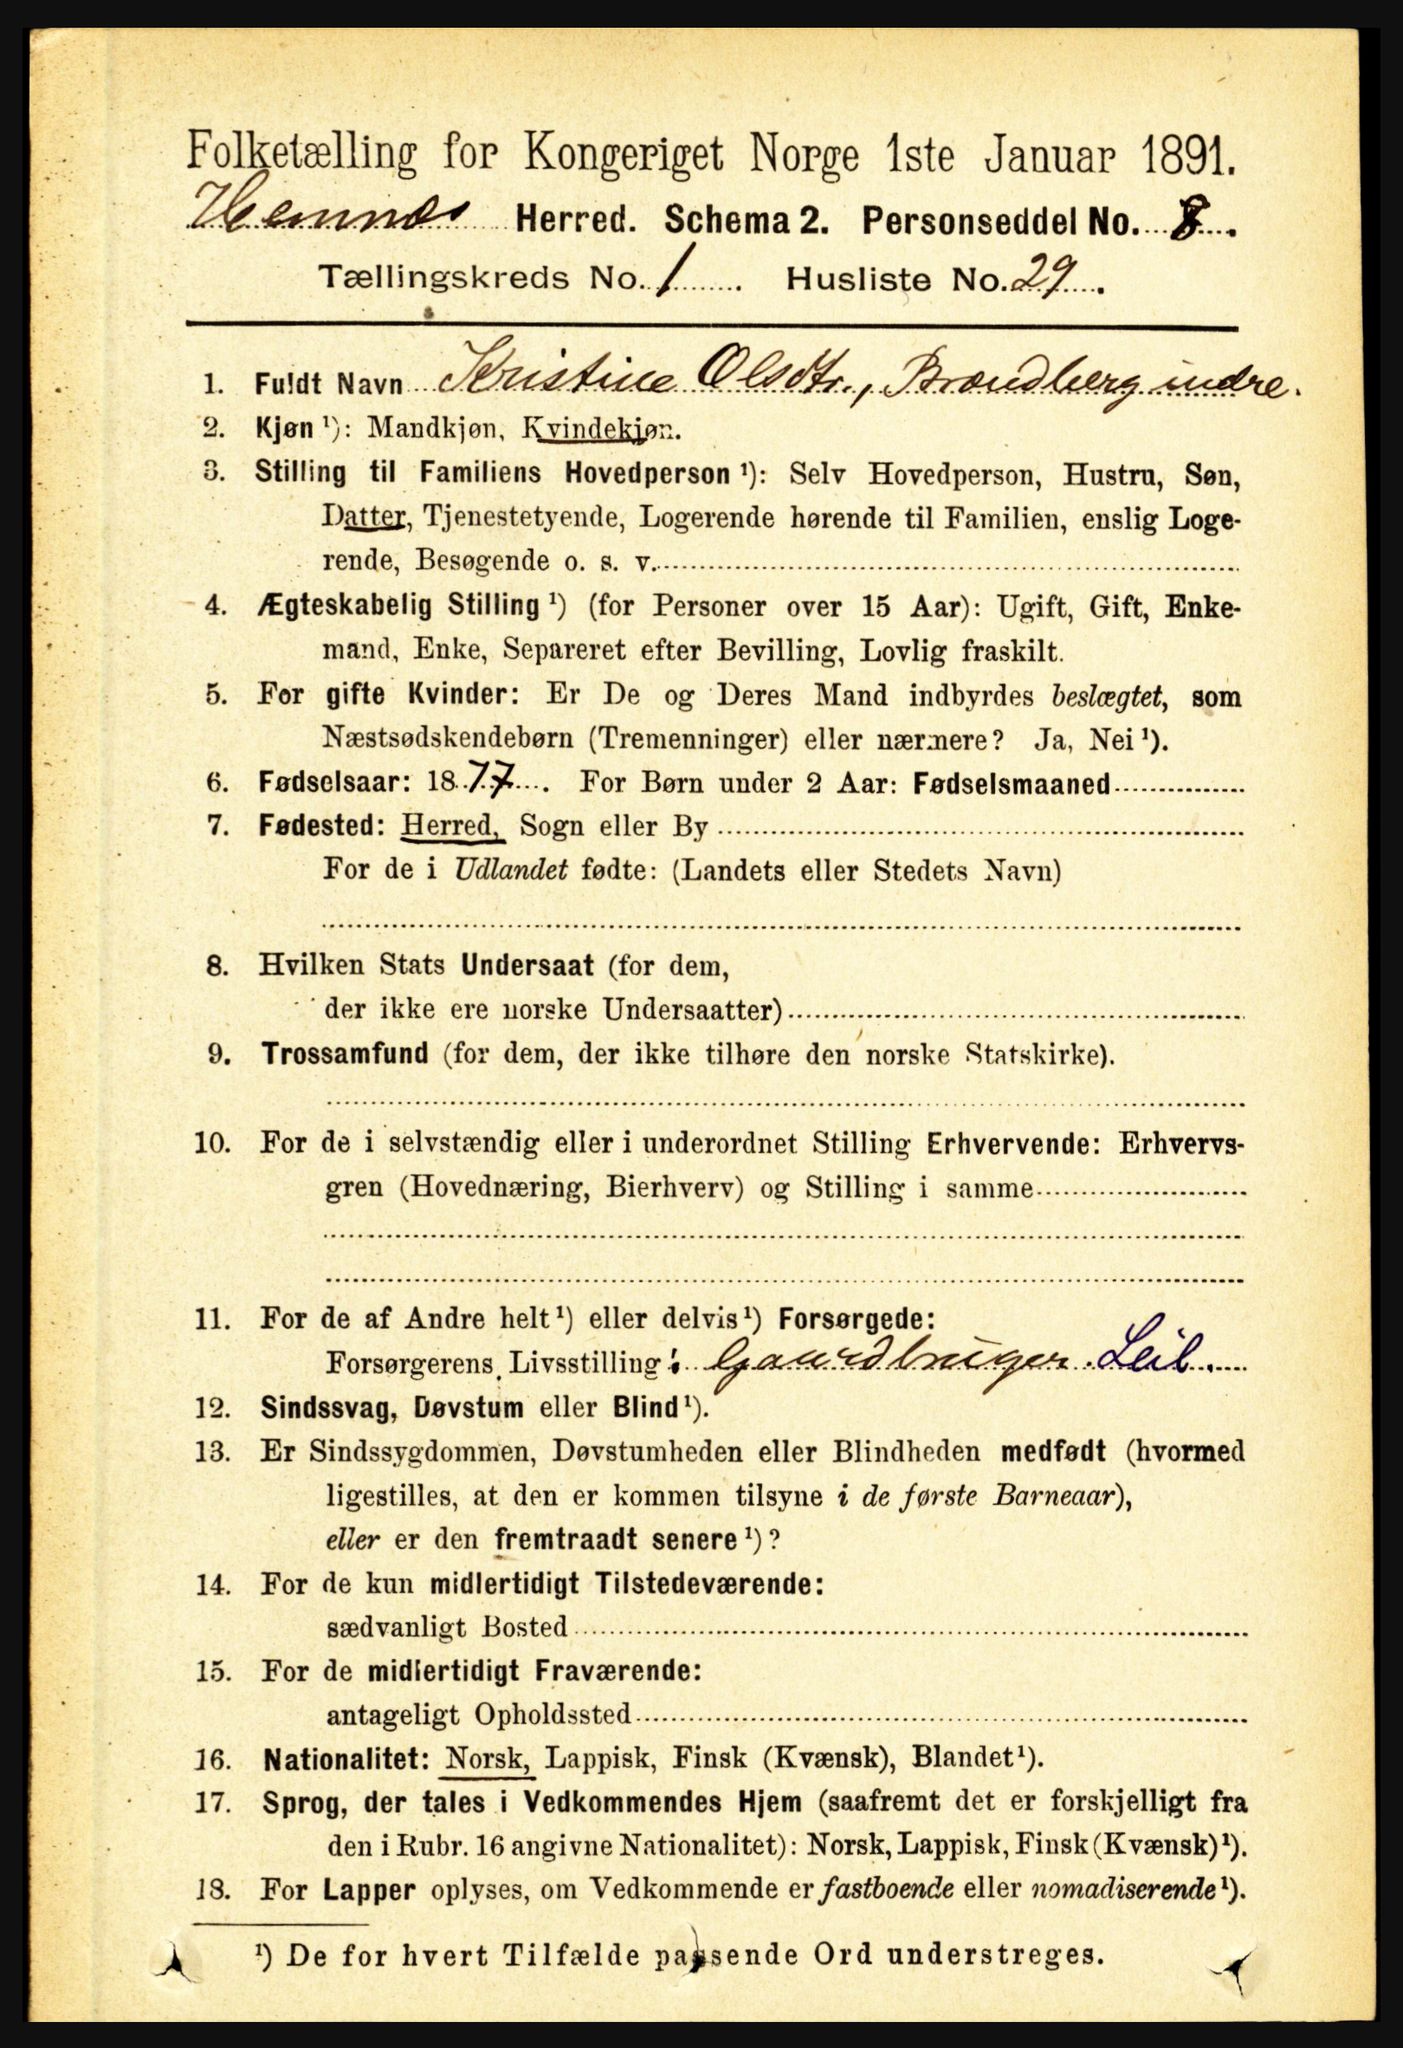 Folketælling for Kongeriget Norge 1ste Januar 1891.
Hemnæs Herred. Schema 2. Personseddel No. 8.
Tællingskreds No. 1. Husliste No. 29.
1. Fuldt Navn Kristine Olsdtr., Brændberg indre.
2. Kjøn ¹): Mandkjøn, Kvindekjøn.
3. Stilling til Familiens Hovedperson ¹): Selv Hovedperson, Hustru, Søn,
Datter, Tjenestetyende, Logerende hørende til Familien, enslig Loge-
rende, Besøgende o. s. v.
4. Ægteskabelig Stilling ¹) (for Personer over 15 Aar): Ugift, Gift, Enke-
mand, Enke, Separeret efter Bevilling, Lovlig fraskilt.
5. For gifte Kvinder: Er De og Deres Mand indbyrdes beslægtet, som
Næstsødskendebørn (Tremenninger) eller nærmere? Ja, Nei ¹).
6. Fødselsaar: 1877. For Børn under 2 Aar: Fødselsmaaned
7. Fødested: Herred, Sogn eller By
For de i Udlandet fødte: (Landets eller Stedets Navn)
8. Hvilken Stats Undersaat (for dem,
der ikke ere norske Undersaatter)
9. Trossamfund (for dem, der ikke tilhøre den norske Statskirke).
10. For de i selvstændig eller i underordnet Stilling Erhvervende: Erhvervs-
gren (Hovednæring, Bierhverv) og Stilling i samme
11. For de af Andre helt ¹) eller delvis ¹) Forsørgede:
Forsørgerens Livsstilling: Gaardbruger. Leil.
12. Sindssvag, Døvstum eller Blind ¹).
13. Er Sindssygdommen, Døvstumheden eller Blindheden medfødt (hvormed
ligestilles, at den er kommen tilsyne i de første Barneaar),
eller er den fremtraadt senere ¹)?
14. For de kun midlertidigt Tilstedeværende:
sædvanligt Bosted
15. For de midlertidigt Fraværende:
antageligt Opholdssted
16. Nationalitet: Norsk, Lappisk, Finsk (Kvænsk), Blandet ¹).
17. Sprog, der tales i Vedkommendes Hjem (saafremt det er forskjelligt fra
den i Rubr. 16 angivne Nationalitet): Norsk, Lappisk, Finsk (Kvænsk) ¹).
18. For Lapper oplyses, om Vedkommende er fastboende eller nomadiserende ¹).
¹) De for hvert Tilfælde passende Ord understreges.